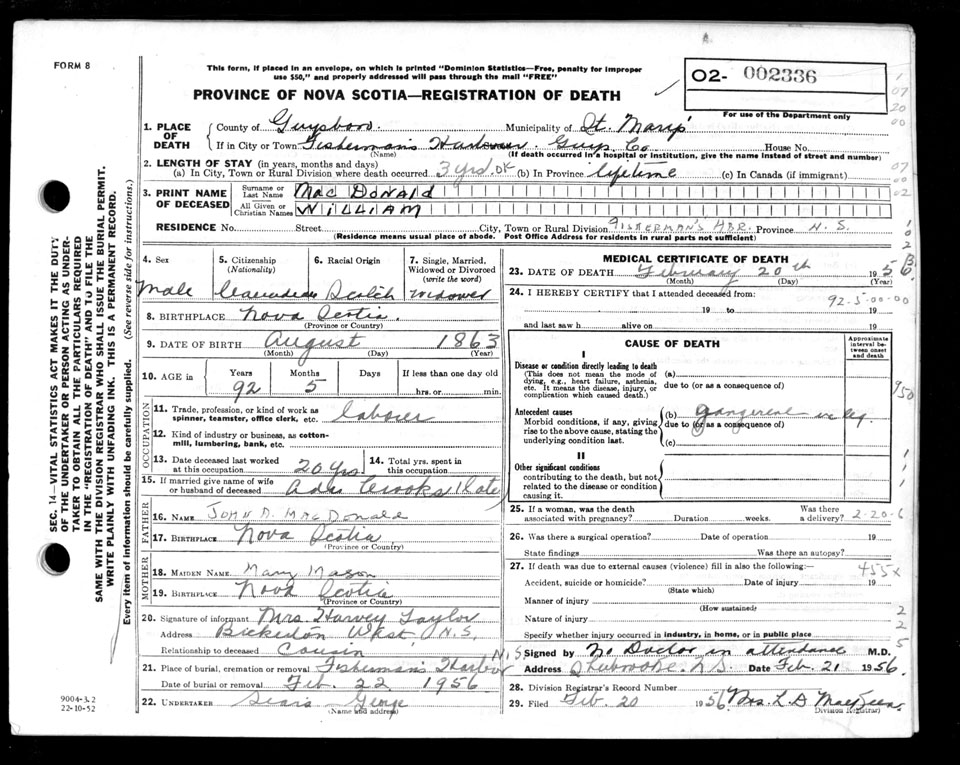 FORM 8
This form, if placed in an envelope, on which is printed "Dominion Statistics—Free, penalty for improper
use $50," and properly addressed will pass through the mail "FREE"
PROVINCE OF NOVA SCOTIA—REGISTRATION OF DEATH
O2- 002336
For use of the Department only
1. PLACE OF DEATH
County of Guysboro Municipality of St. Mary's
If in City or Town Fisherman's Harbour Guys. Co. House No.
(Name) (If death occurred in a hospital or institution, give the name instead of street and number)
2. LENGTH OF STAY (in years, months and days)
(a) In City, Town or Rural Division where death occurred 3 yrs. (b) In Province lifetime (c) In Canada (if immigrant)
3. PRINT NAME OF DECEASED
Surname or Last Name MacDONALD
All Given or Christian Names WILLIAM
RESIDENCE No. Street City, Town or Rural Division FISHERMAN'S HBR. Province N.S.
(Residence means usual place of abode. Post Office Address for residents in rural parts not sufficient)
4. Sex
Male
5. Citizenship
(Nationality)
Canadian
6. Racial Origin
Scotch
7. Single, Married, Widowed or Divorced
(write the word)
widower
8. BIRTHPLACE Nova Scotia.
(Province or Country)
9. DATE OF BIRTH August 1863
(Month) (Day) (Year)
10. AGE in
Years Months Days If less than one day old
92 5 hrs. or min.
OCCUPATION
11. Trade, profession, or kind of work as spinner, teamster, office clerk, etc. laborer
12. Kind of industry or business, as cotton-mill, lumbering, bank, etc.
13. Date deceased last worked at this occupation 20 Yrs.
14. Total yrs. spent in this occupation
15. If married give name of wife or husband of deceased Ada Crooks (late)
FATHER
16. NAME JOHN D. MacDonald
17. BIRTHPLACE Nova Scotia
(Province or Country)
MOTHER
18. MAIDEN NAME Mary Mason
19. BIRTHPLACE Nova Scotia
(Province or Country)
20. Signature of informant Mrs. Harvey Taylor
Address Bickerton West, N.S.
Relationship to deceased Cousin
21. Place of burial, cremation or removal Fisherman's Harbor N.S
Date of burial or removal Feb. 22 1956
22. UNDERTAKER Sears George
(Name and address)
MEDICAL CERTIFICATE OF DEATH
23. DATE OF DEATH February 20th 1956
(Month) (Day) (Year)
24. I HEREBY CERTIFY that I attended deceased from:
92-5-00-00
19 to 19
and last saw h alive on 19
CAUSE OF DEATH
Approximate interval between onset and death
I
Disease or condition directly leading to death
(This does not mean the mode of dying, e.g., heart failure, asthenia, etc. It means the disease, injury, or complication which caused death.)
(a)
due to (or as a consequence of)
Antecedent causes
Morbid conditions, if any, giving rise to the above cause, stating the underlying condition last.
(b) Gangerene in leg.
due to (or as a consequence of)
(c)
II
Other significant conditions
contributing to the death, but not related to the disease or condition causing it.
25. If a woman, was the death associated with pregnancy? Duration weeks. Was there a delivery? 2-20-6
26. Was there a surgical operation? Date of operation 19
State findings Was there an autopsy?
27. If death was due to external causes (violence) fill in also the following:— 455x
Accident, suicide or homicide? Date of injury 19
(State which)
Manner of injury
(How sustained)
Nature of injury
Specify whether injury occurred in industry, in home, or in public place
Signed by No Doctor in attendance M.D.
Address Sherbrooke N.S. Date Feb. 21 1956
28. Division Registrar's Record Number
29. Filed Feb. 20 1956 Mrs. L. D
Division Registrar
9004-3.2
22-10-52
SEC. 14—VITAL STATISTICS ACT MAKES IT THE DUTY
OF THE UNDERTAKER OR PERSON ACTING AS UNDER-
TAKER TO OBTAIN ALL THE PARTICULARS REQUIRED
IN THE "REGISTRATION OF DEATH" AND TO FILE THE
SAME WITH THE DIVISION REGISTRAR WHO SHALL ISSUE THE BURIAL PERMIT.
WRITE PLAINLY WITH UNFADING INK. THIS IS A PERMANENT RECORD.
Every item of information should be carefully supplied. (See reverse side for instructions.)